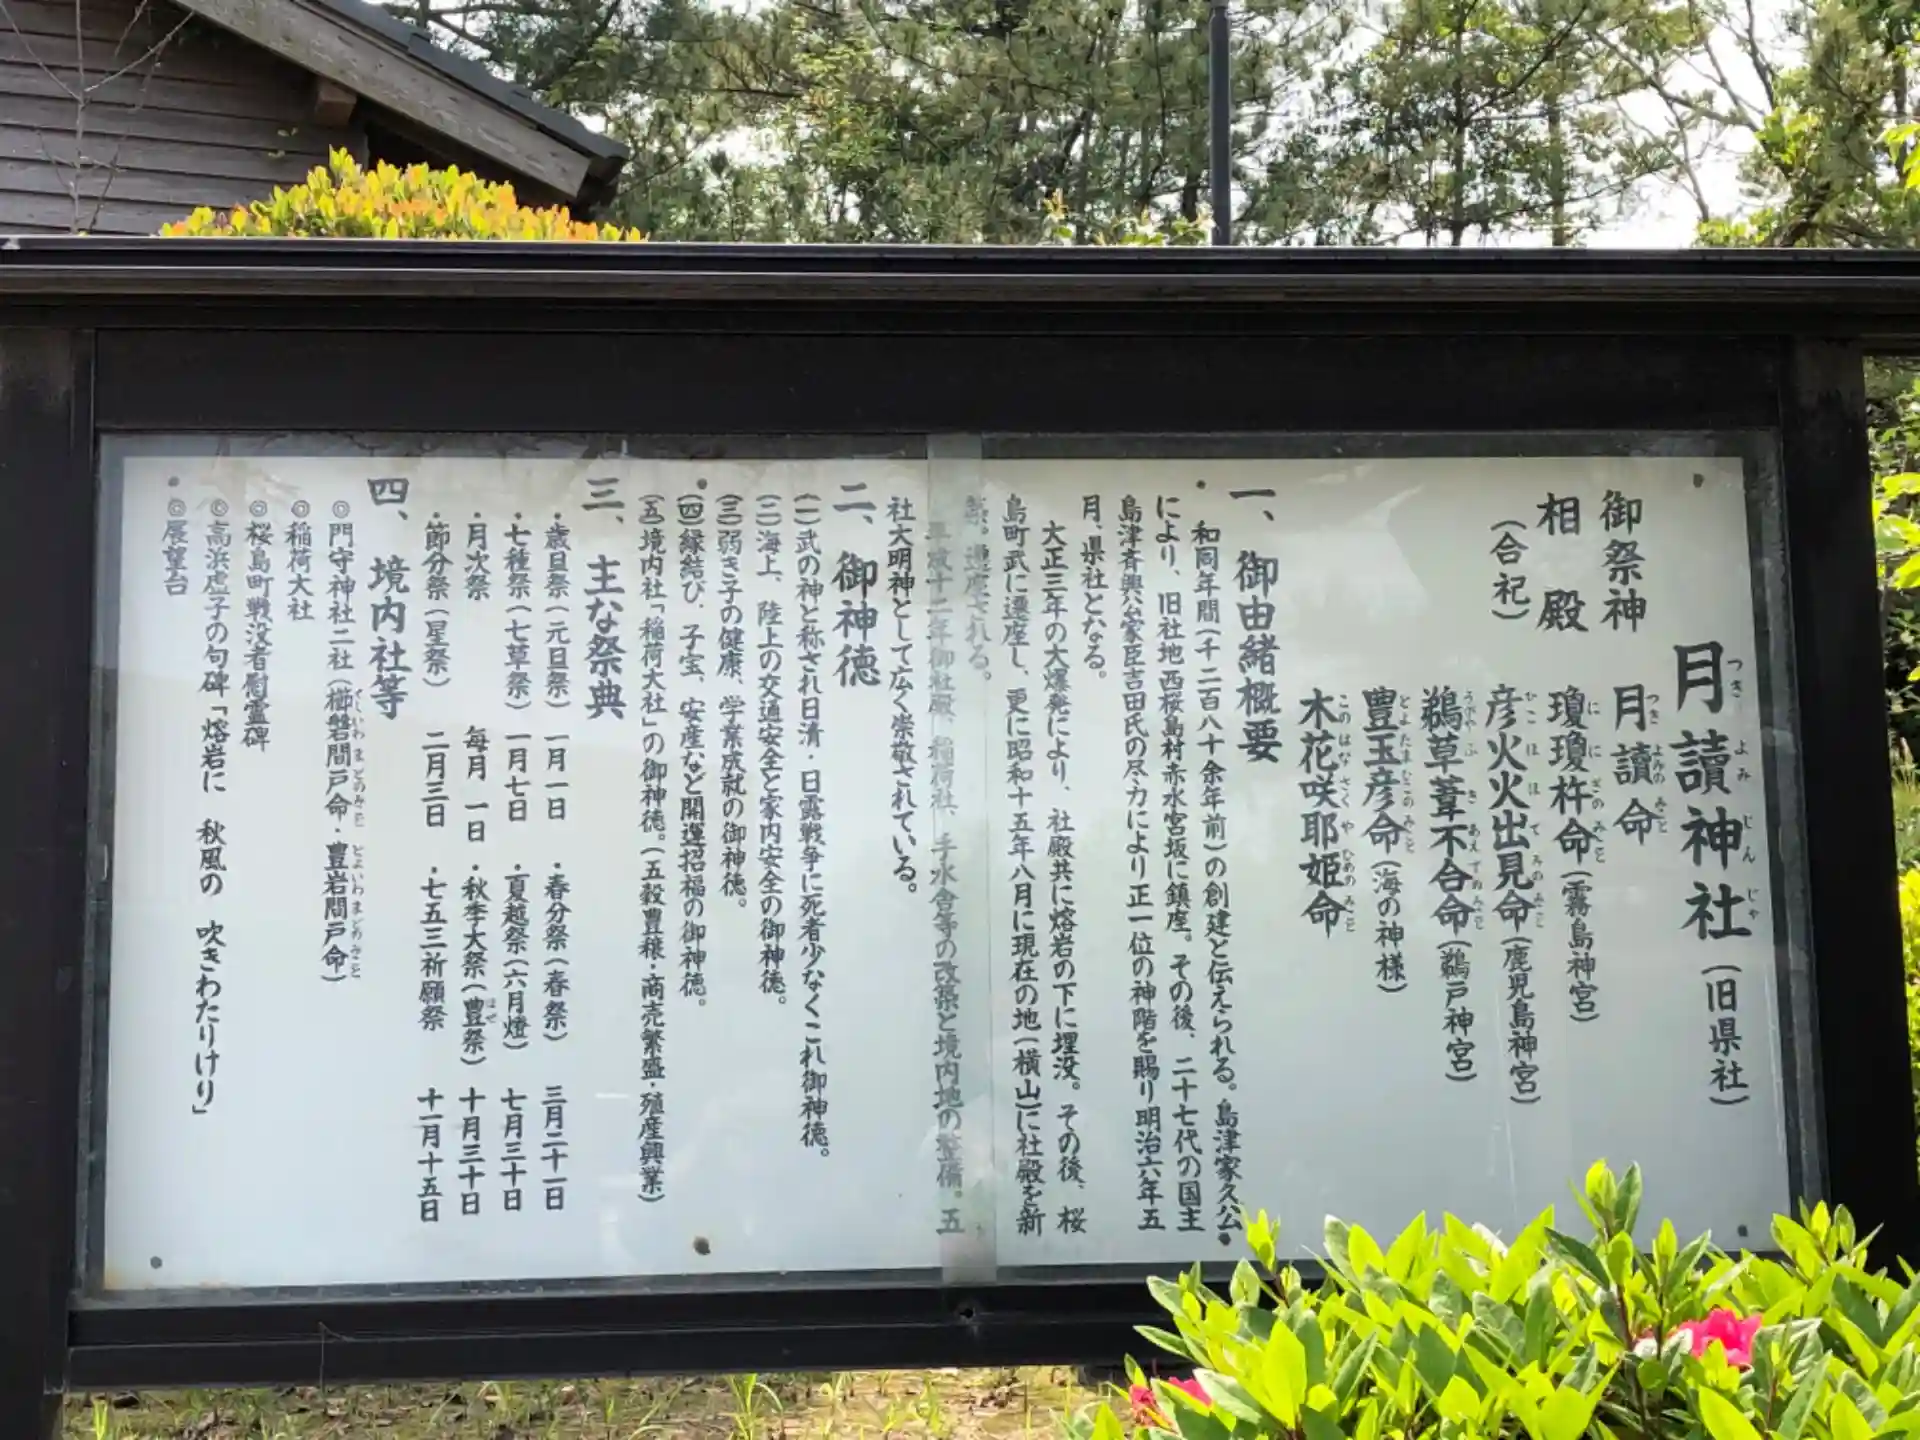 月讀神社（旧県社）
御祭神 月讀命
相殿 瓊瓊杵命（霧島神宮）
（合祀） 彦火火出見命（鹿児島神宮）
鵜草葺不合命（鵜戸神宮）
豊玉彦命（海の神様）
木花咲耶姫命
一、御由緒概要
和同年間（千二百八十余年前）の創建と伝えられる。島津家久公
により、旧社地西桜島村赤水宮坂に鎮座。その後、二十七代の国主
島津斉興公家臣吉田氏の尽力により正一位の神階を賜り明治六年五
月、県社となる。
大正三年の大爆発により、社殿共に熔岩の下に埋没。その後、桜
島町武に遷座し、更に昭和十五年八月に現在の地（横山）に社殿を新
築。遷座される。
平成十二年御社殿、稲荷社、手水舎等の改築と境内地の整備。五
社大明神として広く崇敬されている。
二、御神徳
（一）武の神と称され日清・日露戦争に死者少なくこれ御神徳。
（二）海上、陸上の交通安全と家内安全の御神徳。
（三）弱き子の健康、学業成就の御神徳。
（四）縁結び、子宝、安産など開運招福の御神徳。
（五）境内社「稲荷大社」の御神徳。（五穀豊穣・商売繁盛・殖産興業）
三、主な祭典
・歳旦祭（元旦祭） 一月一日 ・春分祭（春祭） 三月二十一日
・七種祭（七草祭） 一月七日 ・夏越祭（六月燈） 七月三十日
・月次祭 毎月一日 ・秋季大祭（豊祭） 十月三十日
・節分祭（星祭） 二月三日 ・七五三祈願祭 十一月十五日
四、境内社等
◎門守神社二社（櫛磐間戸命・豊岩間戸命）
◎稲荷大社
◎桜島町戦没者慰霊碑
◎高浜虚子の句碑「熔岩に 秋風の 吹きわたりけり」
◎展望台